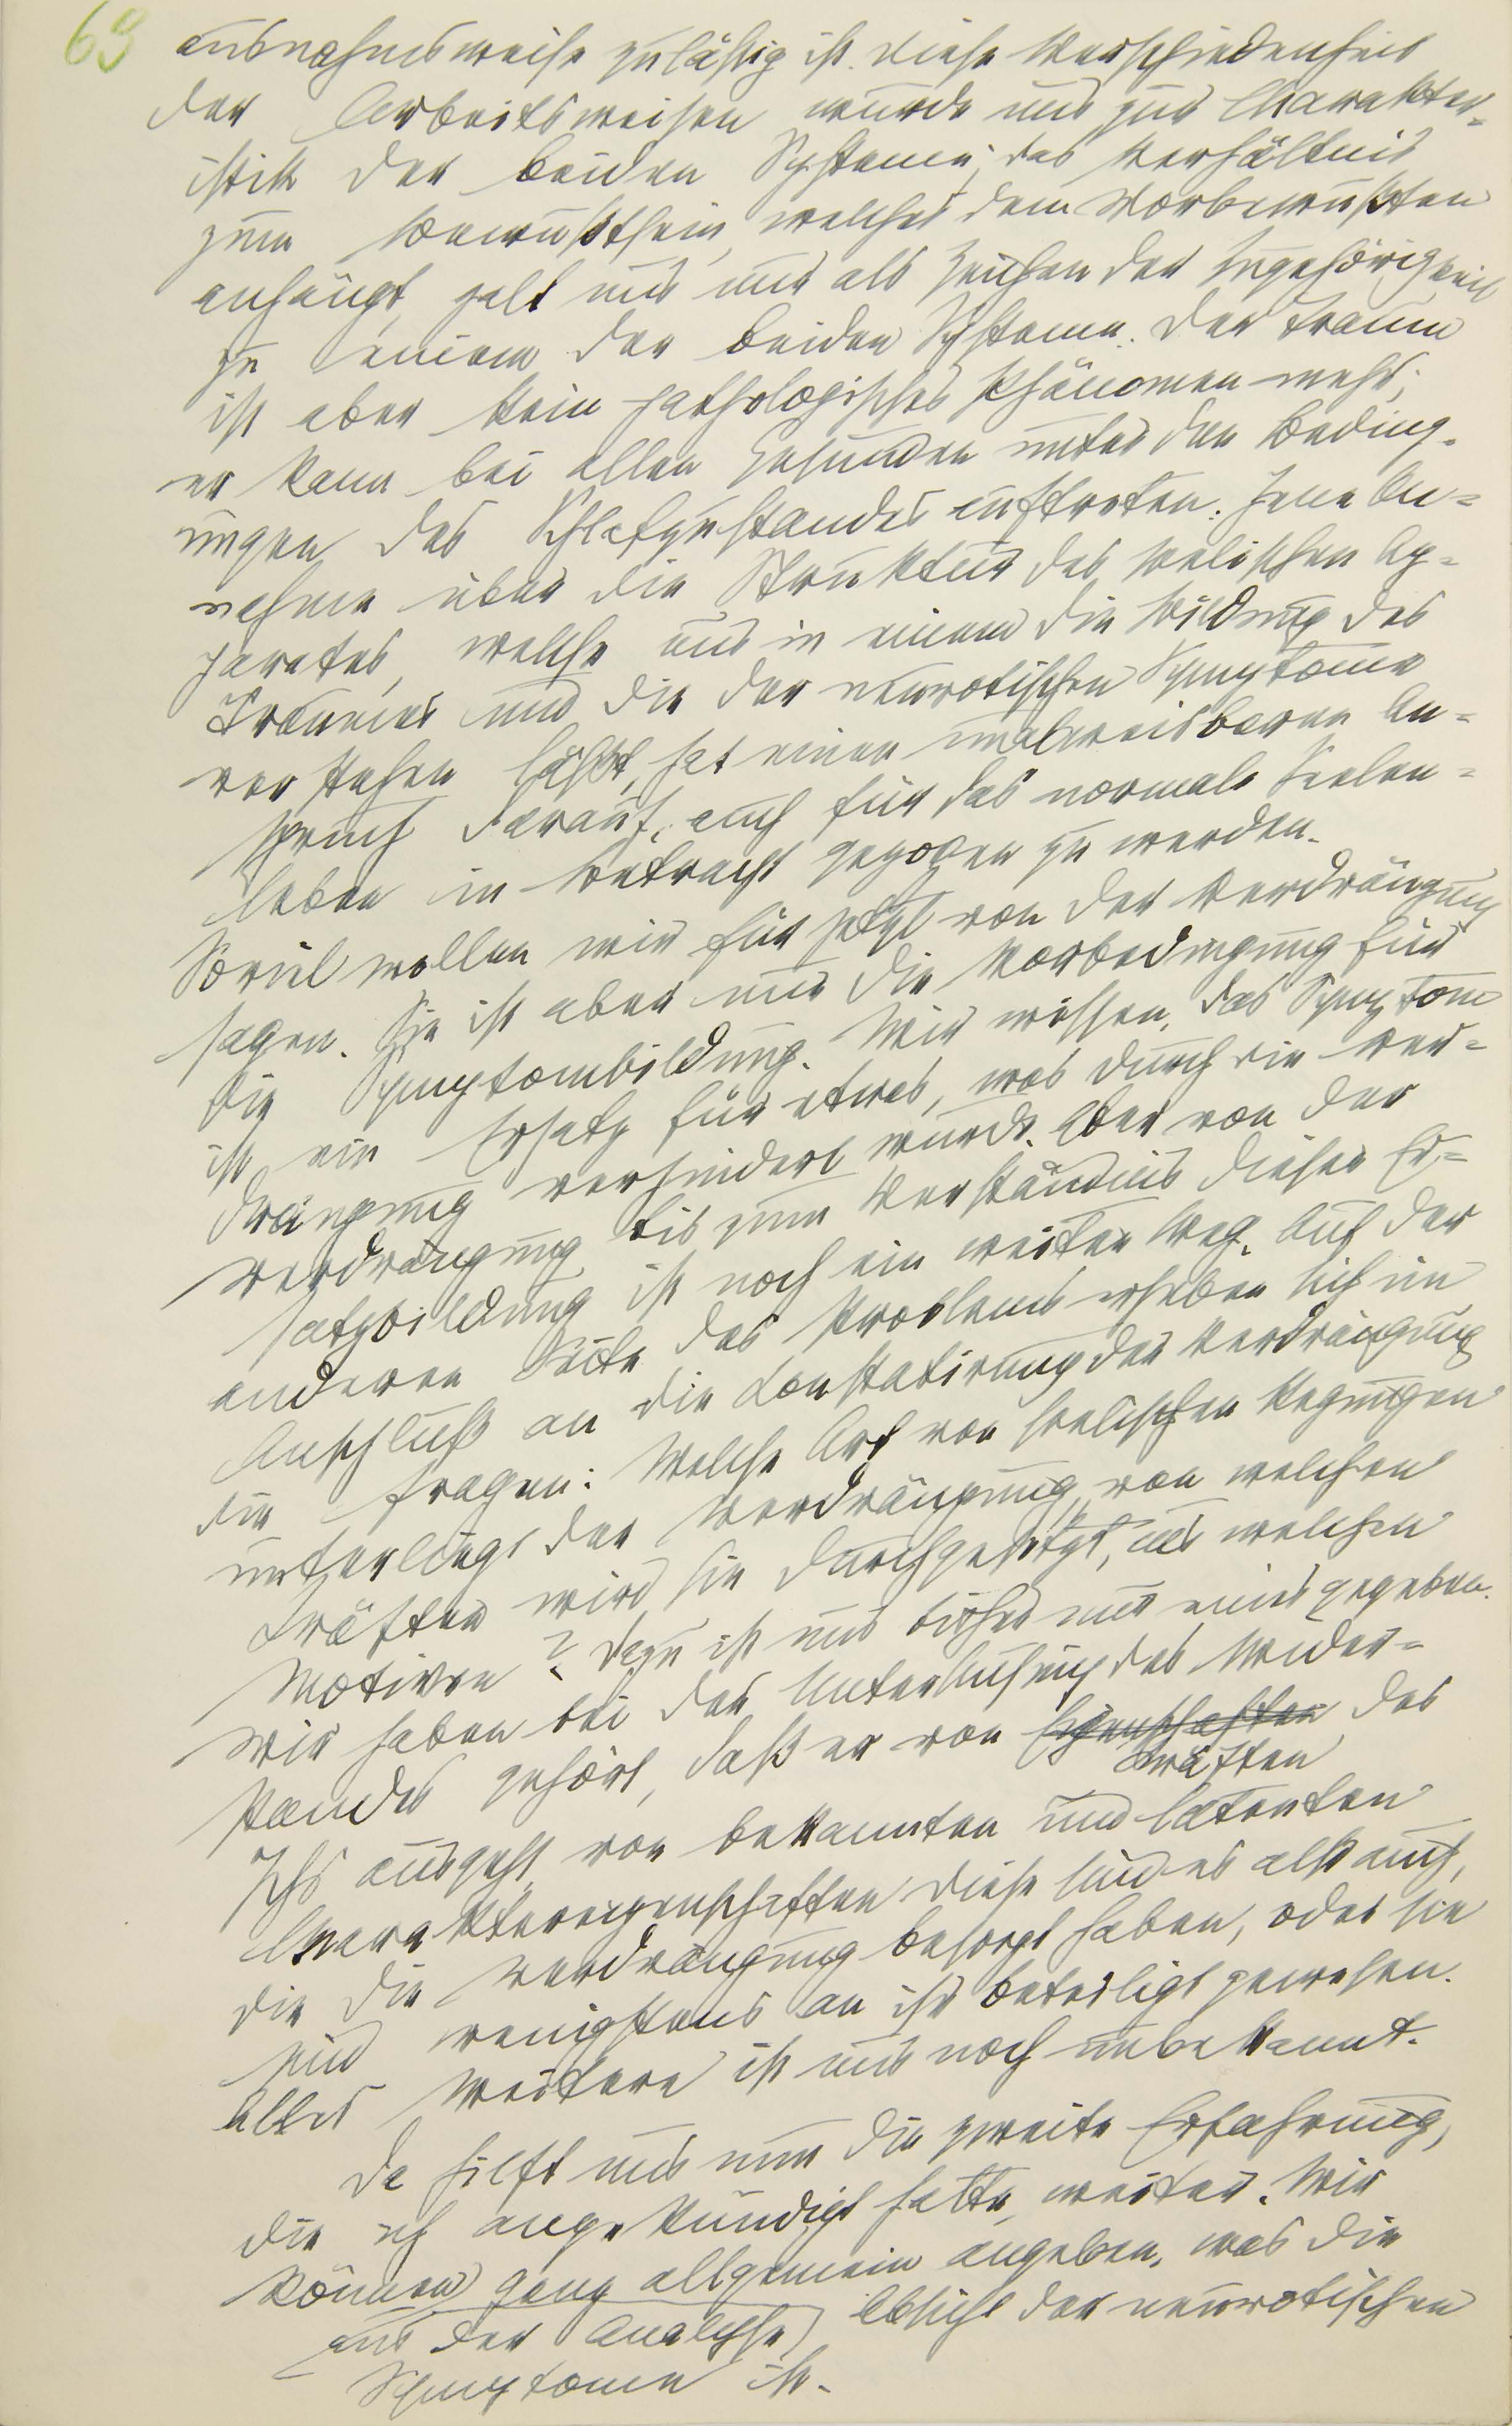 63
ausnahmsweise zuläßig ist. Diese Verschiedenheit
der Arbeitsweisen wurde uns zur Charakter-
istik der beiden Systeme; das Verhältnis
zum Bewußtsein, welches dem Vorbewußten
anhängt, galt uns nur als Zeichen der Zugehörigkeit
zu einem der beiden Systeme. Der Traum
ist aber kein pathologisches Phänomen mehr;
er kann bei allen Gesunden unter den Beding-
ungen des Schlafzustandes auftreten. Jene An=
nahme über die Struktur des seelischen Ap=
parates, welche uns in einem die Bildung des
Traumes und die der neurotischen Symptome
verstehen läßt, hat einen unabweisbaren An=
spruch darauf, auch für das normale Seelen=
leben in Betracht gezogen zu werden.
Soviel wollen wir für jetzt von der Verdrängung
sagen. Sie ist aber nur die Vorbedingung für
die Symptombildung. Wir wissen, das Symptom
ist ein Ersatz für etwas, was durch die Ver=
drängung verhindert wurde. Aber von der
Verdrängung bis zum Verständnis dieser Er=
satzbildung ist noch ein weiter Weg. Auf der
anderen Seite des Problems erheben sich im
Anschluß an die Konstatirung der Verdrängung
die Fragen: Welche Art von seelischen Regungen
unterliegt der Verdrängung, von welchen
Kräften wird sie durchgesetzt, aus welchen
Motiven? Dazu ist uns bisher nur eines gegeben.
Wir haben bei der Untersuchung des Wider=
standes gehört, daß er von Eigenschaften des
Kräften
Ichs ausgeht, von bekannten und latenten
Charaktereigenschaften diese sind es also auch,
die die Verdrängung besorgt haben, oder sie
sind wenigstens an ihr beteiligt gewesen.
Alles Weitere ist uns noch unbekannt.
Da hilft uns nun die zweite Erfahrung,
die ich angekündigt hatte, weiter. Wir
können ganz allgemein angeben, was die
aus der Analyse Absicht der neurotischen
Symptome ist.